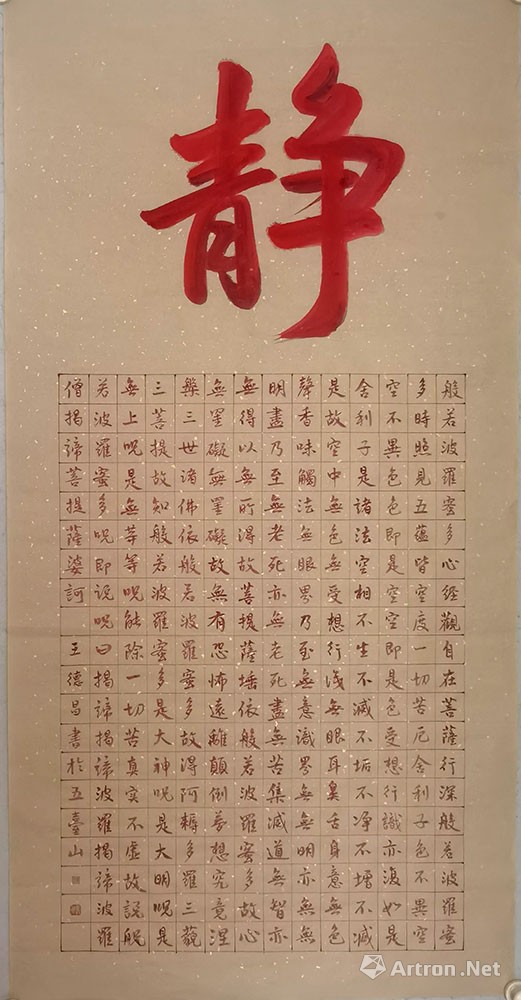 靜
般若波羅蜜多心經觀自在菩薩行深般若波羅蜜
多時照見五蘊皆空度一切苦厄舍利子色不異空
空不異色色即是空空即是色受想行識亦復如是
舍利子是諸法空相不生不滅不垢不净不增不減
是故空中無色無受想行識無眼耳鼻舌身意無色
聲香味觸法無眼界乃至無意識界無無明亦無無
明盡乃至無老死亦無老死盡無苦集滅道無智亦
無得以無所得故菩提薩埵依般若波羅蜜多故心
無罣礙無罣礙故無有恐怖遠離顛倒夢想究竟涅
槃三世諸佛依般若波羅蜜多故得阿耨多羅三藐
三菩提故知般若波羅蜜多是大神呪是大明呪是
無上呪是無等等呪能除一切苦真實不虛故說般
若波羅蜜多呪即說呪曰揭諦揭諦波羅揭諦波羅
僧揭諦菩提薩婆訶 王德昌書於五臺山
Artron.Net